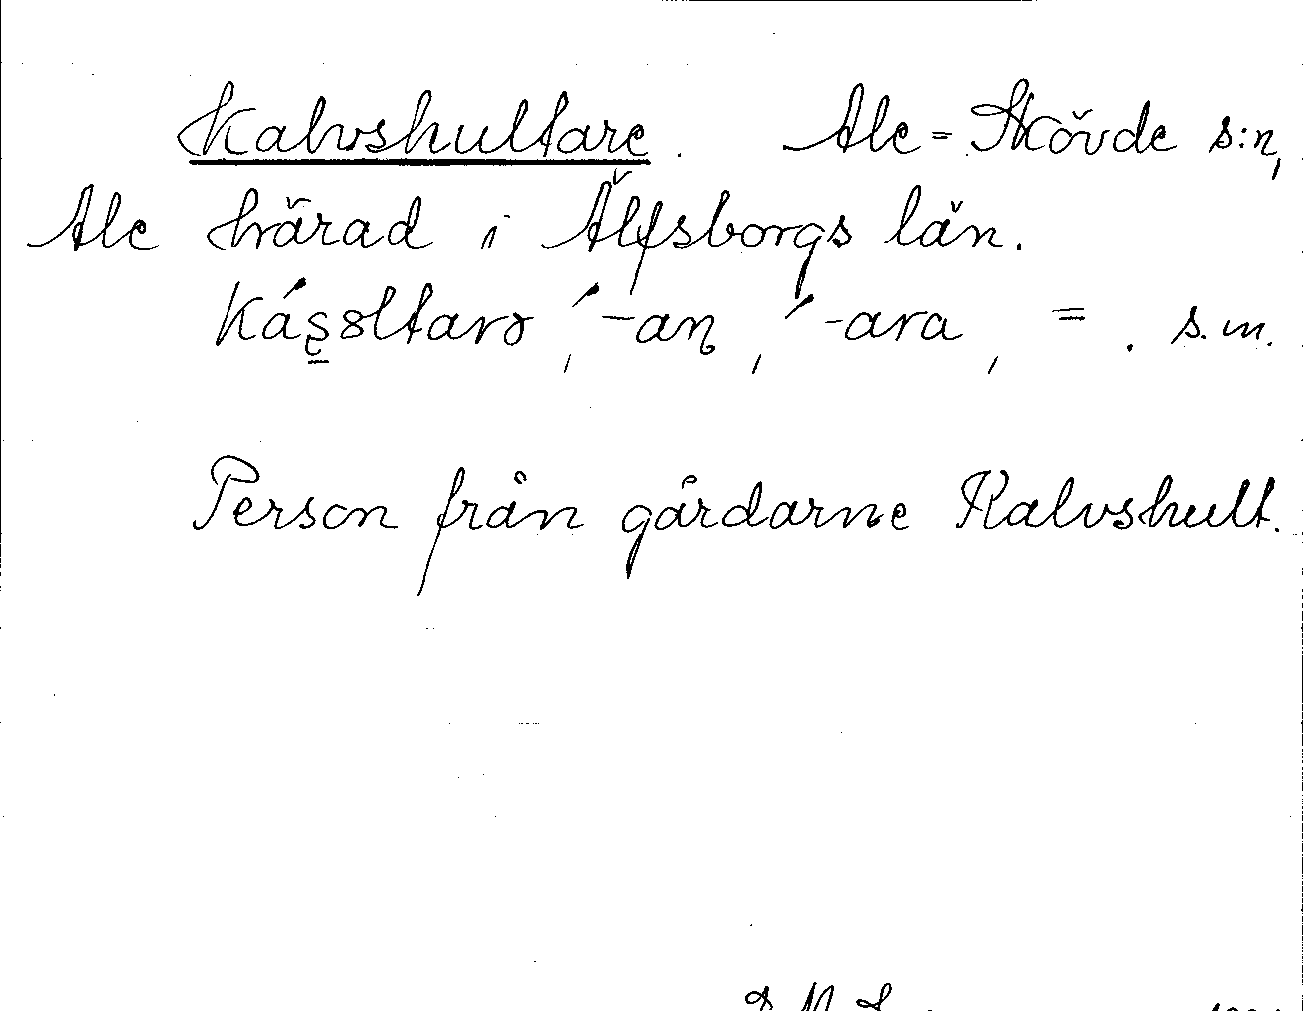 Kalvshultare. Ale-Skövde s:n,
Ale härad i Älfsborgs län.
Kás̠ȣltarə, ́-an̥, ́-ara, = . s.m.
Person från gårdarne Kalvshult.